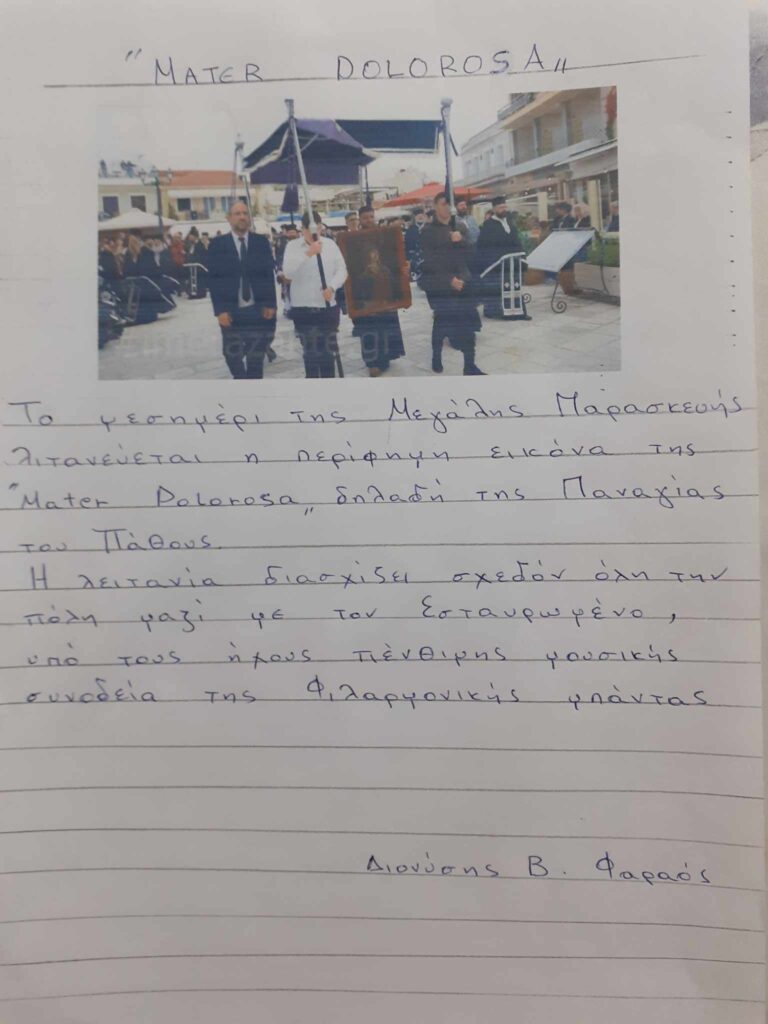 "MATER DOLOROSA„
Το μεσημέρι της Μεγάλης Παρασκευής
λιτανεύεται η περίφημη εικόνα της
"Mater Dolorosa„ δηλαδή της Παναγίας
του Πάθους.
Η λειτανία διασχίζει σχεδόν όλη την
πόλη μαζί με τον Εσταυρωμένο,
υπό τους ήχους πένθιμης μουσικής
συνοδεία της Φιλαρμονικής μπάντας
Διονύσης Β. Φαραός